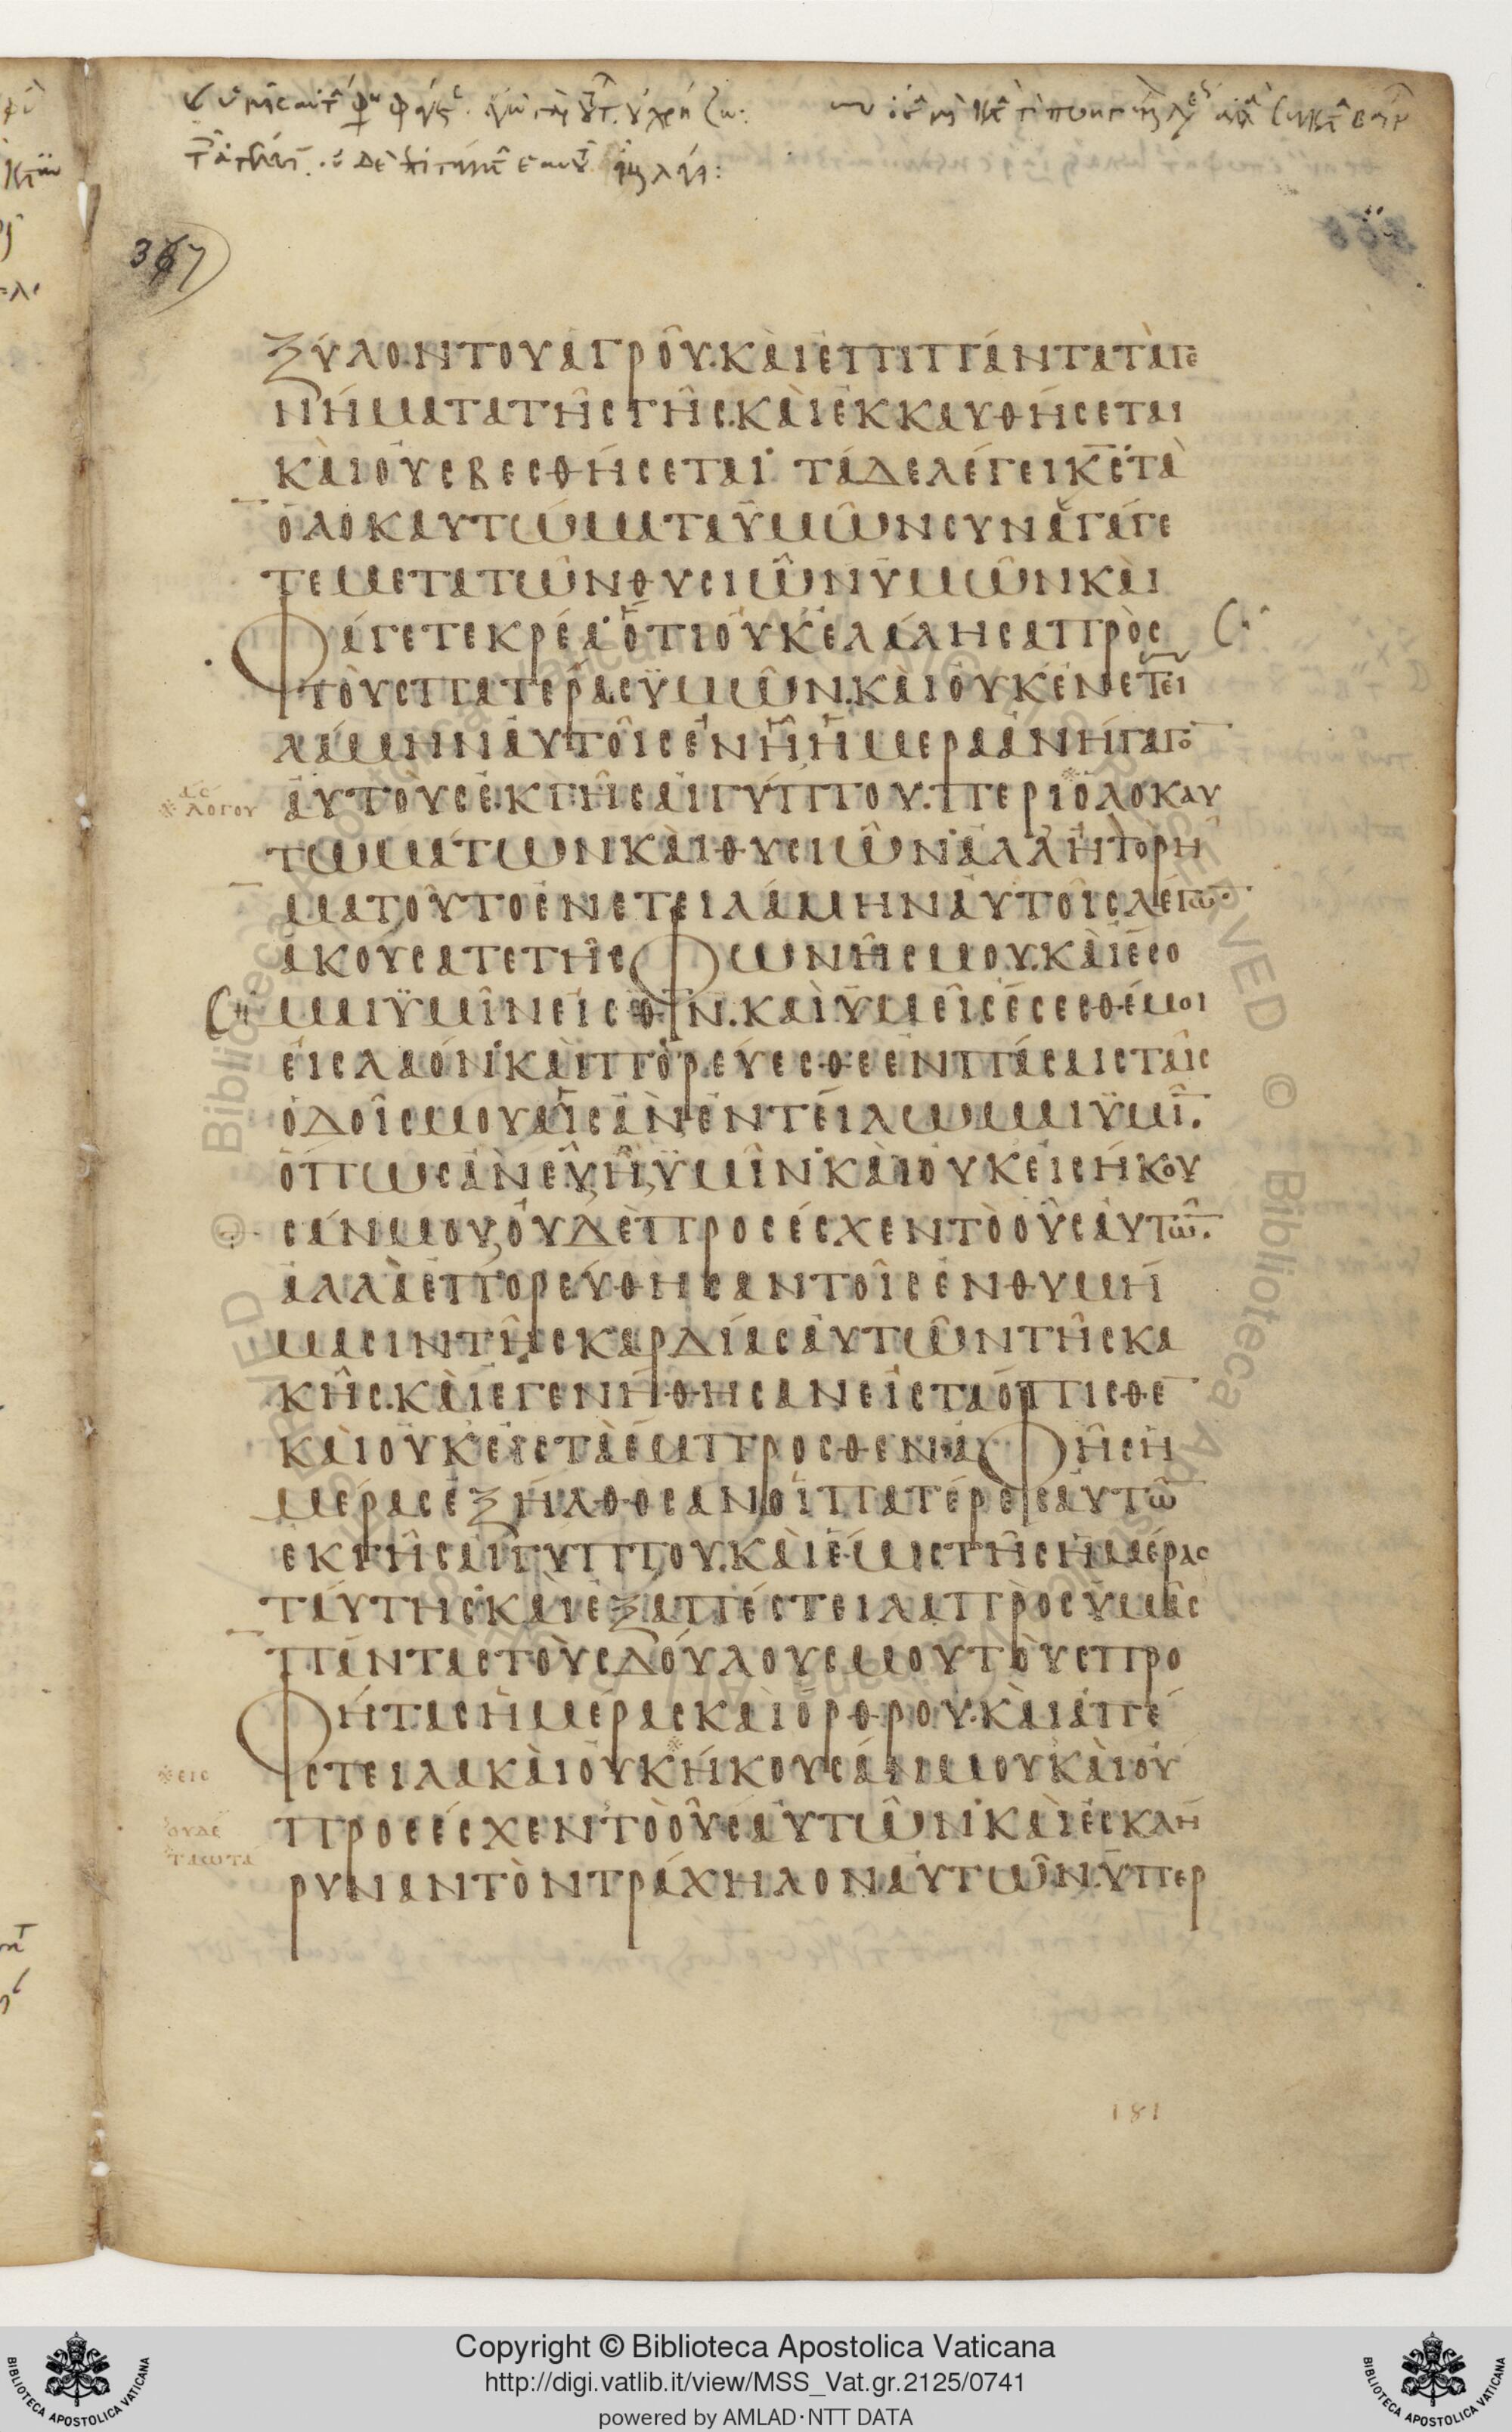 367
ξύλοντουἀγροῦ.κὰιἐπιπάντατὰγε
νήματατῆςγῆς.κὰιἐκκαυθήσεται
κὰιοὐσβεσθήσεται· τάδελέγεικ̅ς̅τὰ
ὁλοκαυτώματαὑμῶνσυναγάγε
τεμετατῶνθυσιῶνὑμῶνκὰι
φάγετεκρέα·ὅτιοὐκἐλάλησαπρὸς
τὸυςπατέραςὑμῶν.κὰιὀυκἐνετει
λάμηνἀυτοῖςἐνᾗἡμέραἀνήγαγο̅
ἀυτὸυςἐκγῆςἀιγύπτου.περιὁλοκαυ
τωμάτωνκὰιθυσιῶν·ἀλλἢτορῆ
ματοῦτοἐνετειλάμηνἀυτοῖςλέγω̅·
ἀκούσατετῆςφωνῆςμου.κὰιἔσο
μαιϋμῖνεἰςθ̅ν̅.καὶὑμεῖςἔσεσθέμοι
εἰςλαόν·κὰιπορεύεσθεἐνπάσαιςταῖς
ὁδοῖςμουαἷςἀνἐντείλωμαιϋμῖ̅.
ὅπωςἀνεὖᾖϋμῖν·κὰιοὐκεἰσήκου
σάνμου,ὀυδὲπροσέσχεντὸοὖςἀυτω̅.
ἀλλὰἐπορεύθησαντοῖςἐνθυμή
μασιντῆςκαρδίαςἀυτῶντῆςκα
κῆς.κὰιἐγενήθησανεἰςταόπισθε̅
κὰιοὐκεἰςτὰἔμπροσθεν·ἀφῆςἡ
μέραςἐξήλθοσανοἱπατέρεςἀυτω̅
ἐκγῆςἀιγύπτου.κὰιἕωςτῆςἡμέρας
ταύτης·κὰιἐξαπέστειλαπρὸςὑμᾶς
πάνταςτοὺςδούλουςμουτοὺςπρο
φήταςἡμέραςκὰιὄρθρου.κὰιἀπέ
στειλακὰιοὐκἤκουσάνμουκὰιοὐ
προσέσχεντὸοὖςἀυτῶν·κὰιἐσκλή
ρυναντὸντράχηλοναὐτῶν.ὑπερ
λόγου
εις
181
Copyright © Biblioteca Apostolica Vaticana
http://digi.vatlib.it/view/MSS_Vat.gr.2125/0741
powered by AMLAD·NTT DATA
BIBLIOTECA APOSTOLICA VATICANA
BIBLIOTECA APOSTOLICA VATICANA